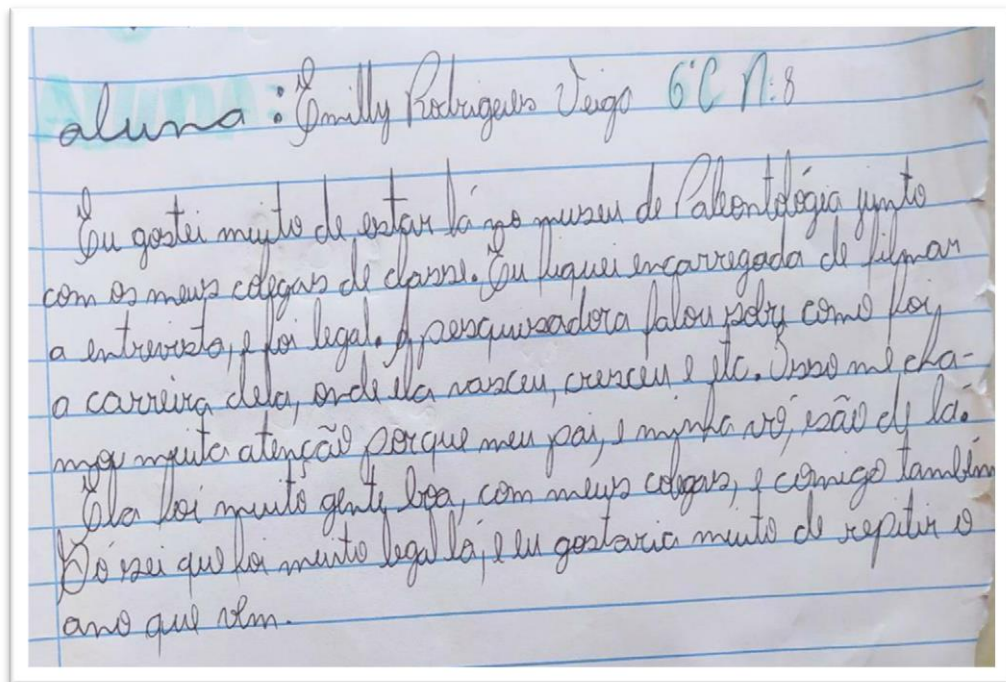 aluna: Emilly Rodrigues Veiga 6°C N:8
Eu gostei muito de estar lá no museu de Paleontológia junto
com os meus colegas de classe. Eu fiquei encarregada de filmar
a entrevista, e foi legal. A pesquisadora falou sobre como foi
a carreira dela, onde ela nasceu, cresceu e etc. Isso me cha-
mou muita atenção porque meu pai, e minha vó, são de lá.
Ela foi muito gente boa, com meus colegas, e comigo também
Só sei que foi muito legal lá, e eu gostaria muito de repitir o
ano que vem.